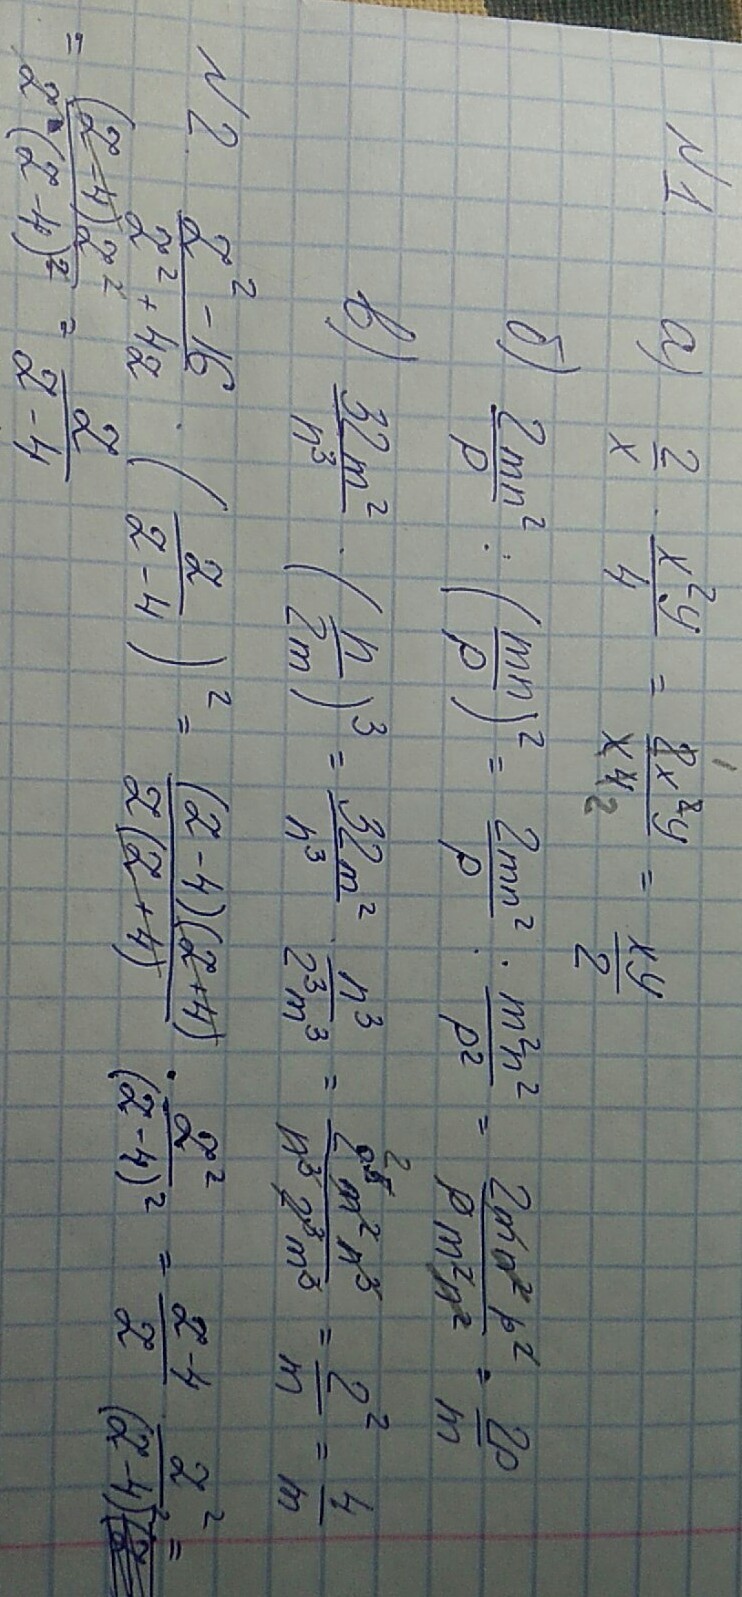 №1 а) 2/x · x²y/4 = 2x²y/x4 = xy/2
б) 2mn²/p : (mn/p)² = 2mn²/p : m²n²/p² = 2mn²p²/pm²n² = 2p/m
в) 32m²/n³ · (n/2m)³ = 32m²/n³ · n³/2³m³ = 2⁵m²n³/n³2³m³ = 2²/m = 4/m
№2 z²-16/z²+4z · (z/z-4)² = (z-4)(z+4)/z(z+4) · z²/(z-4)² = z-4/z · z²/(z-4)² =
= (z-4)z²/z·(z-4)² = z/z-4